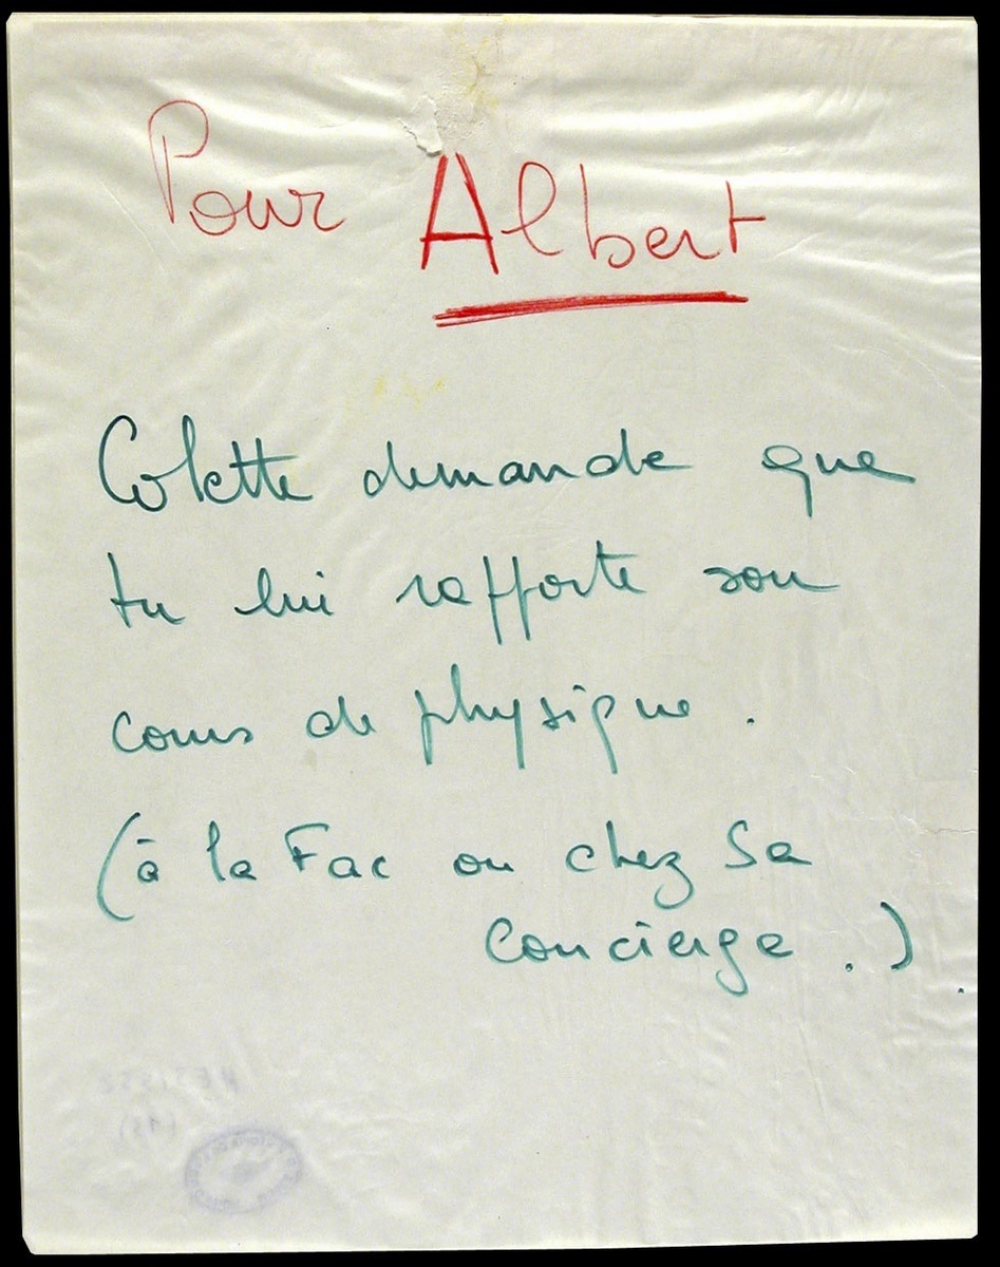 Pour Albert
Colette demande que
tu lui rapporte son
cours de physique.
(à la Fac ou chez Sa
Concierge.)